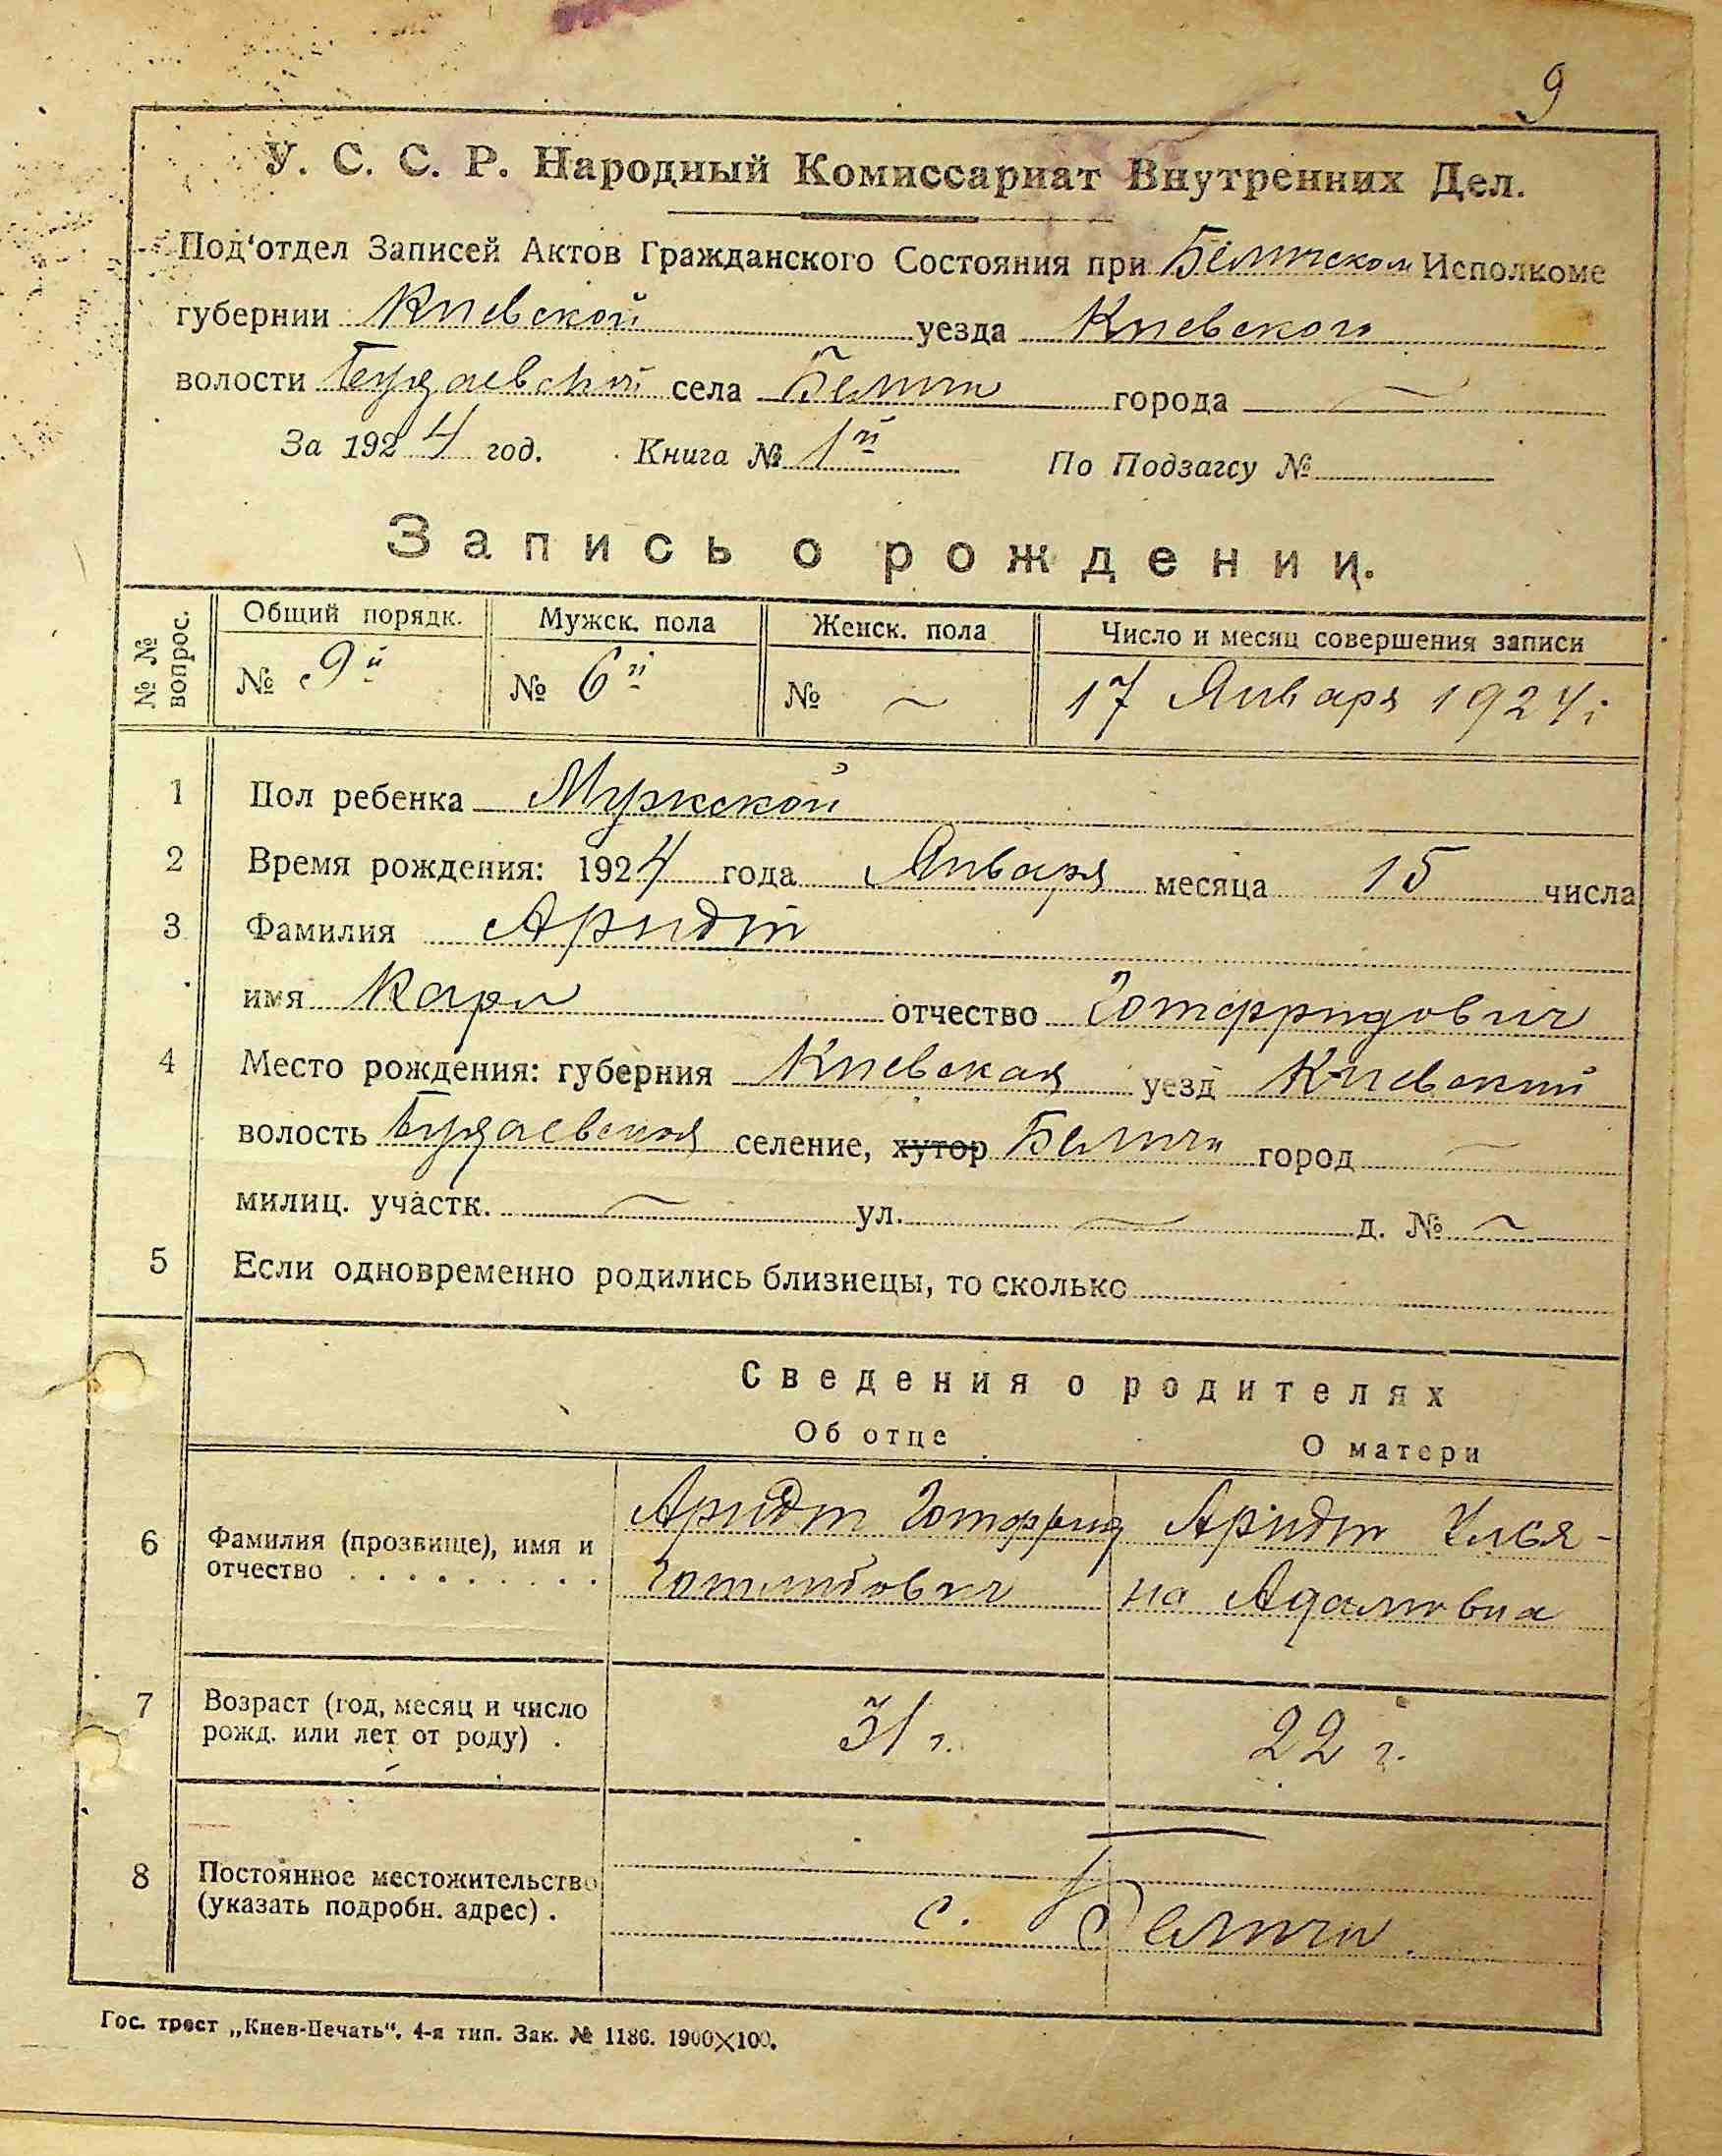 9
У. С. С. Р. Народный Комиссариат Внутренних Дел.
Под'отдел Записей Актов Гражданского Состояния при Беличском Исполкоме
губернии Киевской уезда Киевского
волости Будаевской села Беличи города —
За 1924 год. Книга № 1й По Подзагсу №
Запись о рождении.
№ № вопрос. Общий порядк. Мужск. пола Женск. пола Число и месяц совершения записи
№ 9й № 6й № — 17 Января 1924 г
1 Пол ребенка Мужской
2 Время рождения: 1924 года Января месяца 15 числа
3 Фамилия Арндт
имя Карл отчество Готфридович
4 Место рождения: губерния Киевская уезд Киевский
волость Будаевская селение, хутор Беличи город —
милиц. участк. — ул. — д. № —
5 Если одновременно родились близнецы, то сколько
Сведения о родителях
Об отце О матери
6 Фамилия (прозвище), имя и отчество . . . . . . . . . .
Арндт Готфрид Арндт Улья-
Готлибович на Адамовна
7 Возраст (год, месяц и число рожд. или лет от роду) .
31 г. 22 г.
8 Постоянное местожительство (указать подробн. адрес) .
с. Беличи
Гос. трест „Киев-Печать“. 4-я тип. Зак. № 1186. 1900×100.